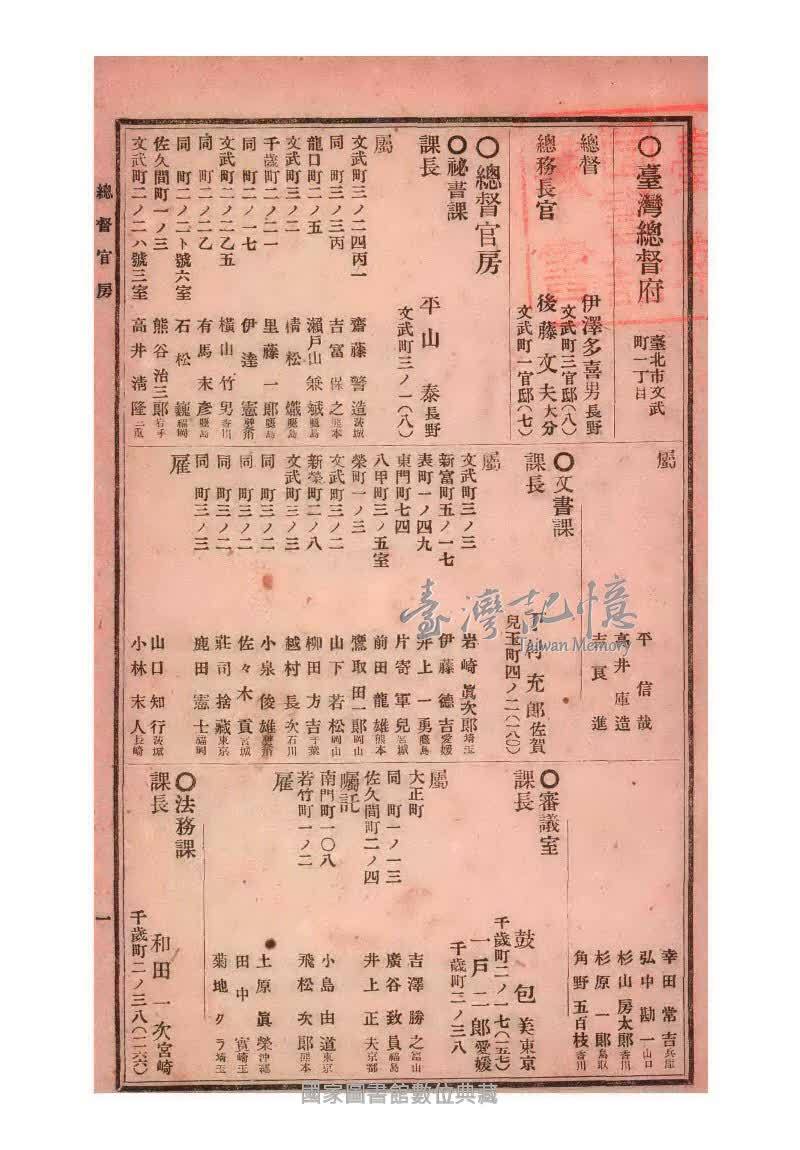 ○臺灣總督府 臺北市文武町一丁目
總督 伊澤多喜男 長野
文武町三官邸(八)
總務長官 後藤文夫 大分
文武町一官邸(七)
○總督官房
○祕書課
課長 平山泰 長野
文武町三ノ一(八)
屬
文武町三ノ二四丙一 齋藤警造 茨城
同町三ノ三丙 吉富保之 熊本
龍口町二ノ五 瀨戶山 鹿島
文武町三ノ二 情松 鹿島
千歲町二ノ二一 里藤一郎 鹿島
同町二ノ一七 伊達憲
文武町二ノ二乙五 橫山竹男 香川
同町二ノ二乙 有馬末彥 鹿島
同町二ノ二ト號六室 石松 福岡
佐久間町一ノ三 熊谷治三郎 岩手
文武町二ノ二ハ號三室 高井清隆 三重
屬
平信哉
高井庫造
吉良進
○文書課
課長 村充郎 佐賀
兒玉町四ノ二(一八〇)
屬
文武町三ノ三 岩崎眞次郎 埼玉
新富町五ノ一七 伊藤德吉 愛媛
表町一ノ四九 井上一勇 鹿島
東門町七四 片寄軍兒 宮城
八甲町三ノ五室 前田龍雄 熊本
榮町一ノ三 鷹取田一郎 岡山
文武町三ノ二 山下若松 岡山
新榮町二ノ八 柳田方吉 千葉
文武町三ノ三 越村長次 石川
同町三ノ二 小泉俊雄
同町三ノ二 佐々木貢 宮城
同町三ノ二 莊司捨藏 東京
同町三ノ三 鹿田憲士 福岡
雇
山口知行 茨城
小林末人 長崎
幸田常吉 兵庫
弘中勘一 山口
杉山房太郎 香川
杉原一郎 鳥取
角野五百枝 香川
○審議室
課長 鼓包美 東京
千歲町二ノ一七(一五七)
一戶二郎 愛媛
千歲町二ノ三八
屬
大正町 吉澤勝之 富山
同町一ノ一三 廣谷致員 福島
佐久間町二ノ四 井上正夫 京都
囑託
南門町一〇八 小島由道 東京
若竹町一ノ二 飛松次郎 熊本
雇
土原眞榮 沖繩
田中實 埼玉
菊地クラ 埼玉
○法務課
課長 和田一次 宮崎
千歲町二ノ三八(二六六)
總督官房
一
臺灣記憶
Taiwan Memory
國家圖書館數位典藏